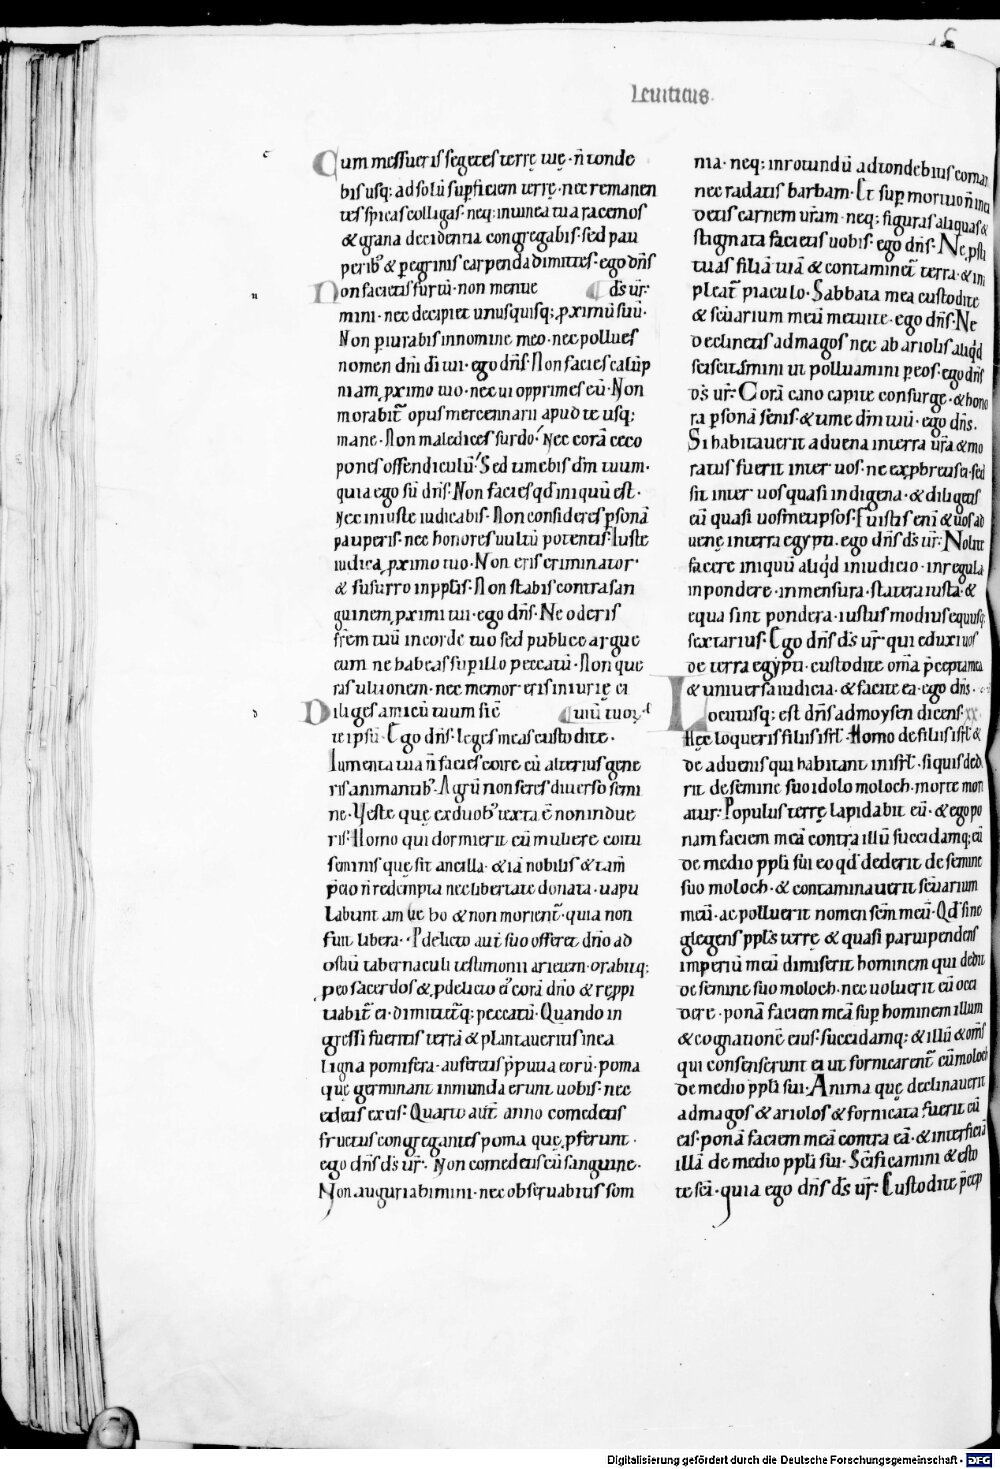 Leuiticus.
Cum messueris segetes terrę tuę · n̄ tonde
bis usq; ad solū sup̱ficiem terrę · nec remanen
tes spicas colligas · neq; in uinea tua racemos
& grana decidentia congregabis · sed pau
perib᷒ & ꝑegrinis carpenda dimittes · ego dn̄s
Non facietis furtū · non menti ds̄ ur̄·
mini · nec decipiet unusquisq; ꝓximū suū ·
Non ꝑiurabis in nomine meo · nec pollues
nomen dn̄i di̅ tui · ego dn̄s · Non facies calūp
niam ꝓximo tuo · nec ui opprimes eū · Non
morabit᷑ opus mercennarii apud te usq;
mane · Non maledices surdo · Nec corā ceco
pones offendiculū · Sed timebis dm̄ tuum ·
quia ego sū dn̄s · Non facies qd̄ iniquū est ·
Nec iniuste iudicabis · Non consideres ꝑsonā
pauperis · nec honores uultū potentis · Iuste
iudica ꝓximo tuo · Non eris criminator ·
& susurro in ppl̄is · Non stabis contra san
guinem ꝓximi tui · ego dn̄s · Ne oderis
fr̄em tuū in corde tuo sed publice argue
eum ne habeas sup̱ illo peccatū · Non que
ras ultionem · nec memor eris iniurię ci
Diliges amicū tuum sic̄ uiū tuoꝝ
te ipsū · Ego dn̄s · leges meas custodite ·
Iumenta tua n̄ facies coire cū alterius gene
ris animantib᷒ · Agrū non seres diuerso semi
ne · Veste que ex duob᷒ texta ē non indue
ris · Homo qui dormierit cū muliere coitu
seminis que sit ancilla · & iā nobilis & tam̄
p̄cio n̄ redempta nec libertate donata · uapu
labunt ambo & non morient᷑ · quia non
fuit libera · Ꝓ delicto aut̄ suo offeret dn̄o ad
ostiū tabernaculi testimonii arietem · orabitq;
ꝓ eo sacerdos & ꝓ delicto ei᷒ corā dn̄o & reppi
tiabit᷑ ei · dimittet᷑q; peccatū · Quando in
gressi fueritis terrā & plantaueritis in ea
ligna pomifera · auferetis p̄putia eorū · poma
quę germinant inmunda erunt uobis · nec
edetis ex eis · Quarto aut̄ anno comedetis
fructus congregantes poma quę ꝓferunt ·
ego dn̄s ds̄ ur̄ · Non comedetis cū sanguine ·
Non auguriabimini · nec obseruabitis som
nia · neq; in rotundū adtondebitis comam
nec radatis barbam · Et sup̱ mortuo n̄ inci
detis carnem ur̄am · neq; figuras aliquas &
stigmata facietis uobis · ego dn̄s · Ne ꝓsti
tuas filiā tuā & contaminet᷑ terra · & im
pleat᷑ piaculo · Sabbata mea custodite
& sc̄uarium meū metuite · ego dn̄s · Ne
declinetis ad magos nec ab ariolis aliqd̄
sciscitemini ut polluamini ꝑ eos · ego dn̄s
ds̄ ur̄ · Corā cano capite consurge · & hono
ra ꝑsonā senis · & time dm̄ tuū · ego dn̄s ·
Si habitauerit aduena in terra ur̄a & mo
ratus fuerit inter uos · ne exꝓbretis ei · sed
sit inter uos quasi indigena · & diligetis
eū quasi uosmetipsos · Fuistis enī & uos ad
uenę in terra egypti · ego dn̄s ds̄ ur̄ · Nolite
facere iniquū aliqd̄ in iudicio · in regula
in pondere · in mensura · statera iusta · &
equa sint pondera · iustus modius equusq;
sextarius · Ego dn̄s ds̄ ur̄ qui eduxi uos
de terra egypti · custodite om̄a p̄cepta mea
& uniuersa iudicia · & facite ea · ego dn̄s ·
Locutusq; est dn̄s ad moysen dicens · xx
Hęc loqueris filiis isr̄l · Homo de filiis isr̄l &
de aduenis qui habitant in isr̄l · si quis ded
rit de semine suo idolo moloch · morte mori
atur · Populus terrę lapidabit eū · & ego po
nam faciem meā contra illū succidamq; eū
de medio ppl̄i sui eo qd̄ dederit de semine
suo moloch · & contaminauerit sc̄uarium
meū · ac polluerit nomen sc̄m meū · Qd̄ si ne
glegens ppl̄s terrę & quasi paruipendens
imperiū meū dimiserit hominem qui dedit
de semine suo moloch · nec uoluerit eū occi
dere · ponā faciem meā sup̱ hominem illum
& cognationē eius · succidamq; & illū & om̄s
qui consenserunt ei ut fornicarent᷑ cū moloch
de medio ppl̄i sui · Anima quę declinauerit
ad magos & ariolos & fornicata fuerit cū
eis · ponā faciem meā contra eā · & interficiā
illā de medio ppl̄i sui · Sc̄ificamini & esto
te sc̄i · quia ego dn̄s ds̄ ur̄ · Custodite p̄cep
Digitalisierung gefördert durch die Deutsche Forschungsgemeinschaft - DFG